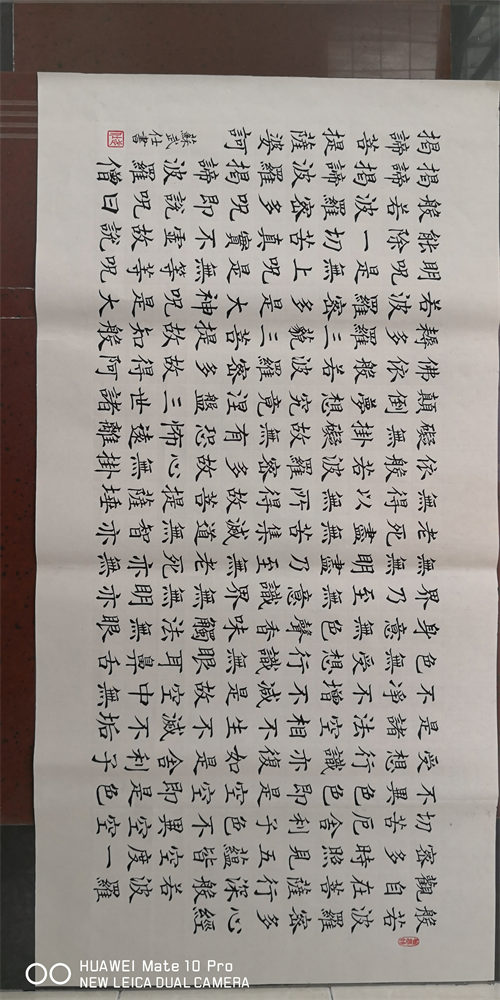 般若波羅密多心經
觀自在菩薩行深般若波羅
密多時照見五蘊皆空度一
切苦厄舍利子色不異空空
不異色色即是空空即是色
受想行識亦復如是舍利子
是諸法空相不生不滅不垢
不淨不增不減是故空中無
色無受想行識無眼耳鼻舌
身意無色聲香味觸法無眼
界乃至無意識界無無明亦
無無明盡乃至無老死亦無
老死盡無苦集滅道無智亦
無得以無所得故菩提薩埵
依般若波羅密多故心無掛
礙無掛礙故無有恐怖遠離
顛倒夢想究竟涅盤三世諸
佛依般若波羅密多故得阿
耨多羅三藐三菩提故知般
若波羅密多是大神呪是大
明呪是無上呪是無等等呪
能除一切苦真實不虛故說
般若波羅密多呪即說呪曰
揭諦揭諦波羅揭諦波羅僧
揭諦菩提薩婆訶
蘇武仕書
HUAWEI Mate 10 Pro
NEW LEICA DUAL CAMERA